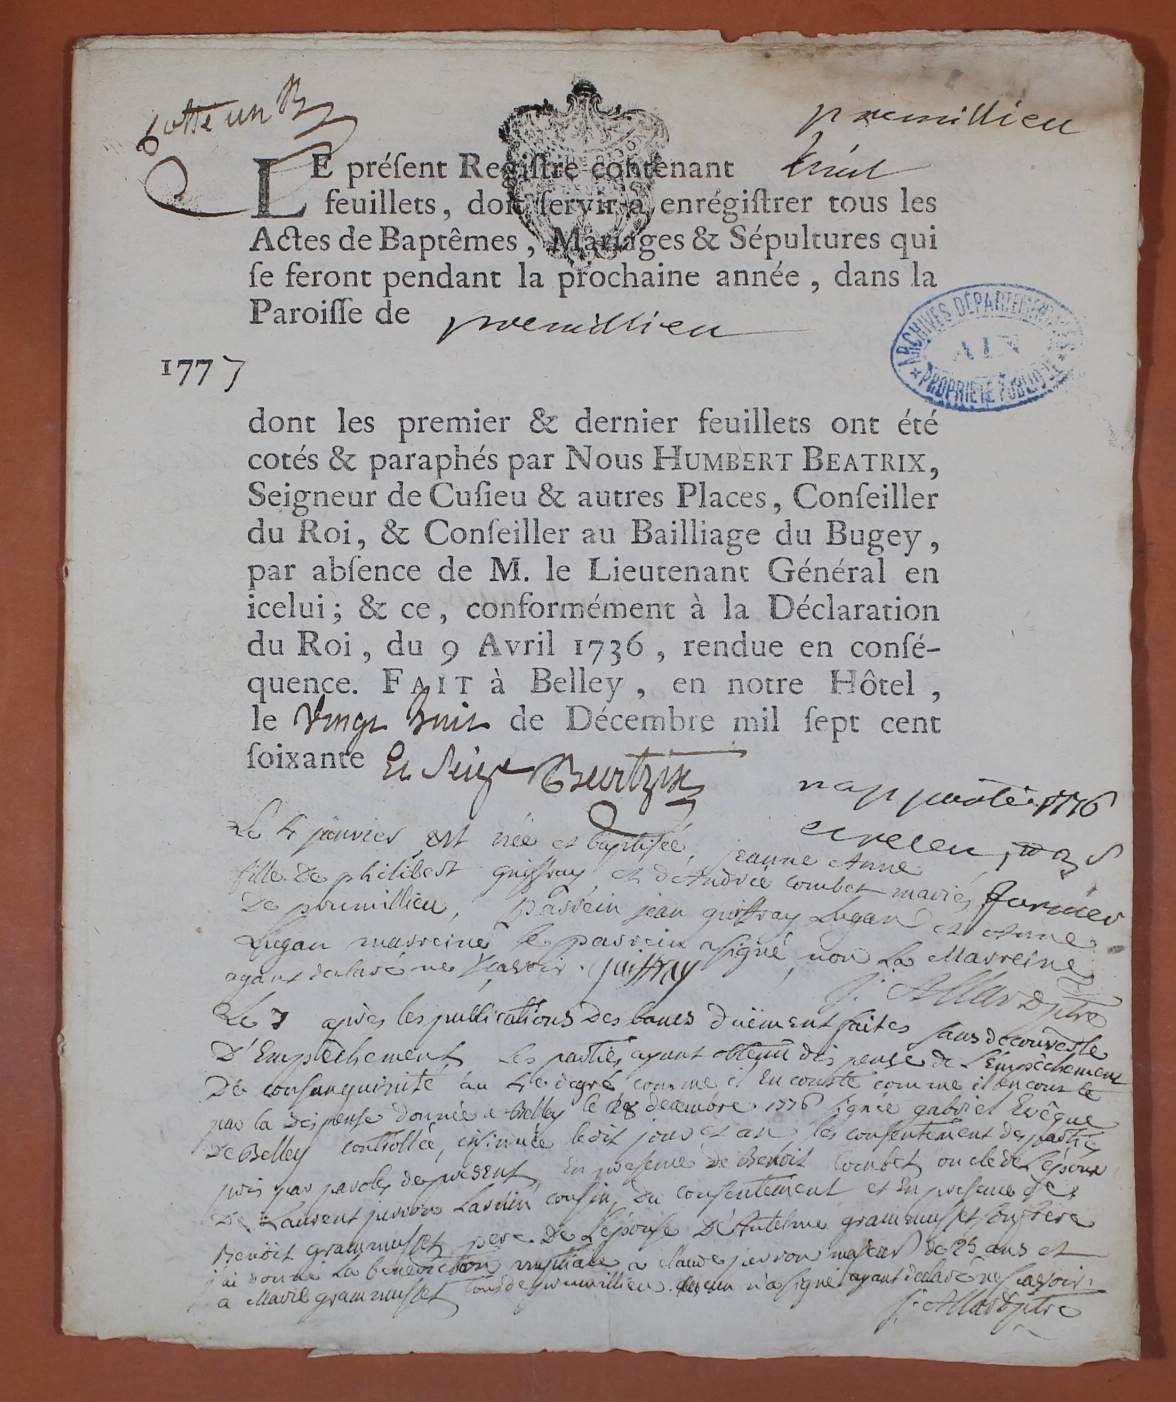 Cotte un
premillieu
LE préſent Regiſtre contenant huit
feuillets, doit ſervir à enrégiſtrer tous les
Actes de Baptêmes, Mariages & Sépultures qui
ſe feront pendant la prochaine année, dans la
Paroiſſe de premillieu
ARCHIVES DÉPARTEMENTALES
AIN
PROPRIÉTÉ PUBLIQUE
1777
dont les premier & dernier feuillets ont été
cotés & paraphés par Nous HUMBERT BEATRIX,
Seigneur de Cuſieu & autres Places, Conſeiller
du Roi, & Conſeiller au Bailliage du Bugey,
par abſence de M. le Lieutenant Général en
icelui; & ce, conformément à la Déclaration
du Roi, du 9 Avril 1736, rendue en conſé-
quence. FAIT à Belley, en notre Hôtel,
le Vingt huit de Décembre mil ſept cent
ſoixante Et Seize Beatrix
rapportée 1776
Le 4 janvier est née et baptisée, jeanne Anne
fille de philibert guiffray et d'Andrée combet mariés
De premillieu, Parrein jean guiffray Lugan et Anne
Lugan marreine le parrein signé, non La Marreine
ayant declaré ne sçavoir. guiffray
j. Allard ptre
Le 7 après les publications des bancs düement faites sans decouverte
D'Empêchement les parties ayant obtenu dispense de L'Empêchement
De consanguinité au 4e degré comme il En conste comme il en conste
par la dispense donnée a Belley le 28 decembre 1776 signée gabriel Evêque
De Belley controllée, insinuée ledit jour et an, les consentement des parties
pris par paroles de present, En presence de Benoit Combet oncle de L'époux
De Laurent cousin, Du consentement et En presence de
Benoit grammusset pere De L'épouse D'Antelme grammusset son frere
j'ai donné La benediction nuptiale a claude majeur de 25 ans et
a Marie grammusset tous de premillieu. aucun n'a signé ayant declaré ne sçavoir
j. Allard ptre